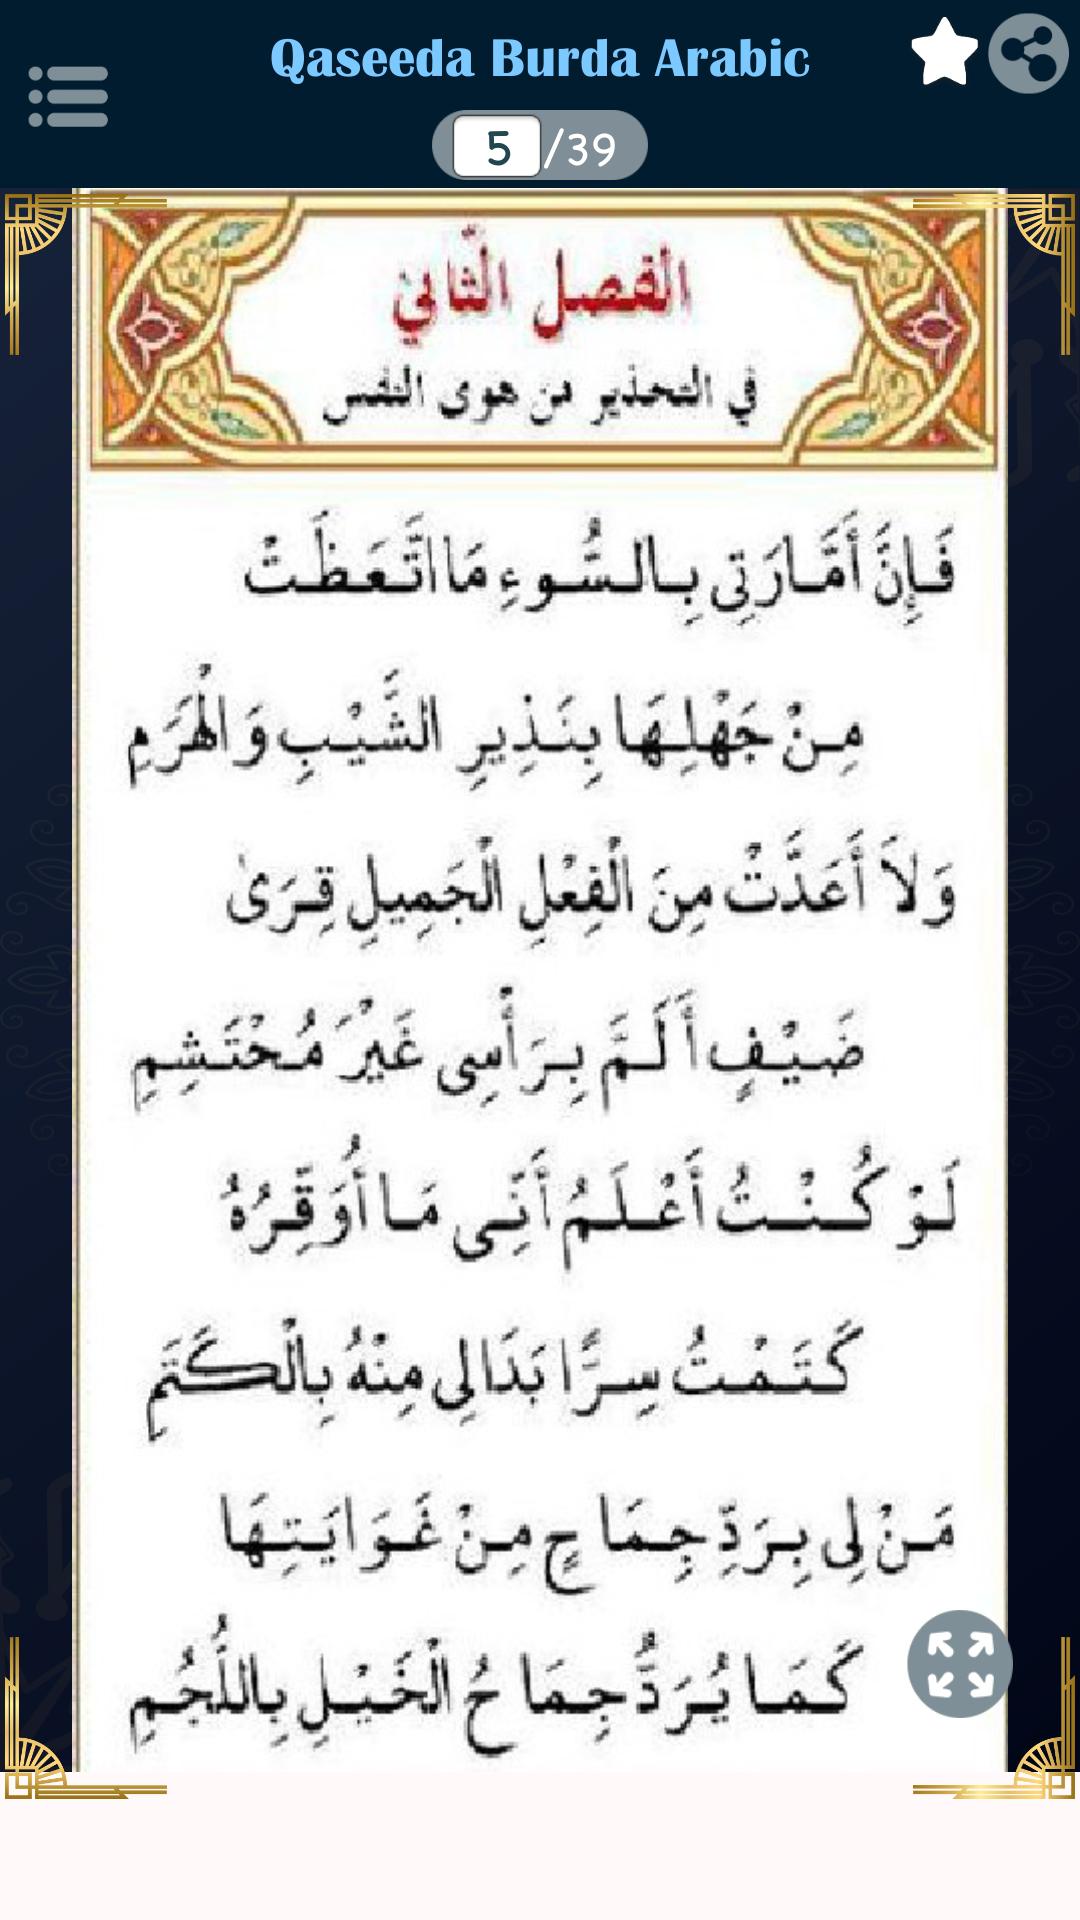 Qaseeda Burda Arabic
5 /39
الفصل الثاني
في التحذير من هوى النفس
فَإِنَّ أَمَّارَتِى بِالسُّوءِ مَا اتَّعَظَتْ
مِنْ جَهْلِهَا بِنَذِيرِ الشَّيْبِ وَالْهَرَمِ
وَلاَ أَعَدَّتْ مِنَ الْفِعْلِ الْجَمِيلِ قِرَىٰ
ضَيْفٍ أَلَمَّ بِرَأْسِى غَيْرَ مُحْتَشِمِ
لَوْ كُنْتُ أَعْلَمُ أَنِّى مَا أُوَقِّرُهُ
كَتَمْتُ سِرًّا بَدَا لِى مِنْهُ بِالْكَتَمِ
مَنْ لِى بِرَدِّ جِمَاحٍ مِنْ غَوَايَتِهَا
كَمَا يُرَدُّ جِمَاحُ الْخَيْلِ بِاللُّجُمِ